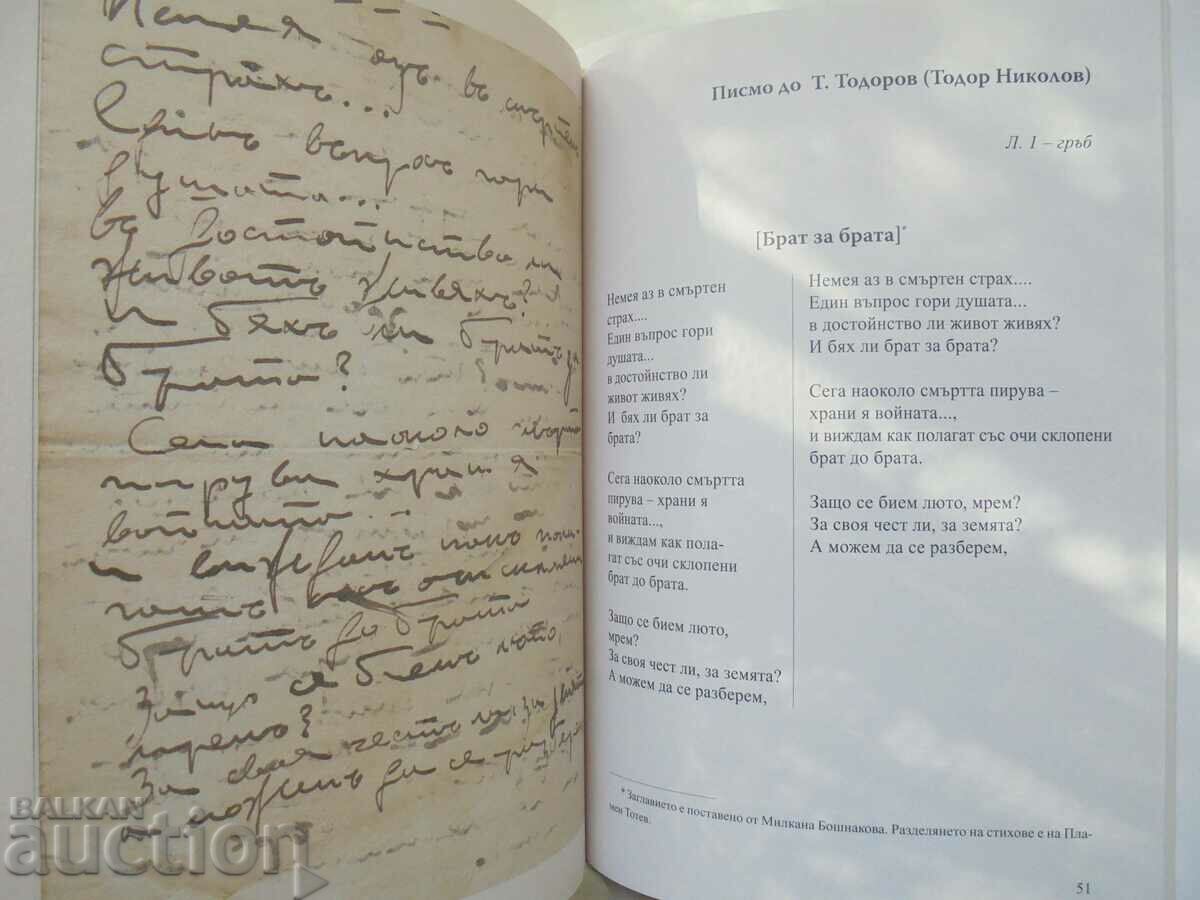 Немея азъ въ смъртенъ
страхъ...
Единъ въпросъ гори
душата...
въ достойнство ли
животъ живяхъ?
И бяхъ ли братъ за
брата?
Сега наоколо смъртта
пирува храни я
войната...
и виждамъ какъ пола-
гатъ съ очи склопени
братъ до брата
Защо се биемъ люто,
мремъ?
За своя честь ли, за земята?
А можемъ да се разберемъ
Писмо до Т. Тодоров (Тодор Николов)
Л. 1 – гръб
[Брат за брата]*
Немея аз в смъртен
страх....
Един въпрос гори
душата...
в достойнство ли
живот живях?
И бях ли брат за
брата?
Сега наоколо смъртта
пирува – храни я
войната...,
и виждам как пола-
гат със очи склопени
брат до брата.
Защо се бием люто,
мрем?
За своя чест ли, за земята?
А можем да се разберем,
Немея аз в смъртен страх....
Един въпрос гори душата...
в достойнство ли живот живях?
И бях ли брат за брата?
Сега наоколо смъртта пирува –
храни я войната...,
и виждам как полагат със очи склопени
брат до брата.
Защо се бием люто, мрем?
За своя чест ли, за земята?
А можем да се разберем,
* Заглавието е поставено от Милкана Бошнакова. Разделянето на стихове е на Пла-
мен Тотев.
51
BALKAN
auction